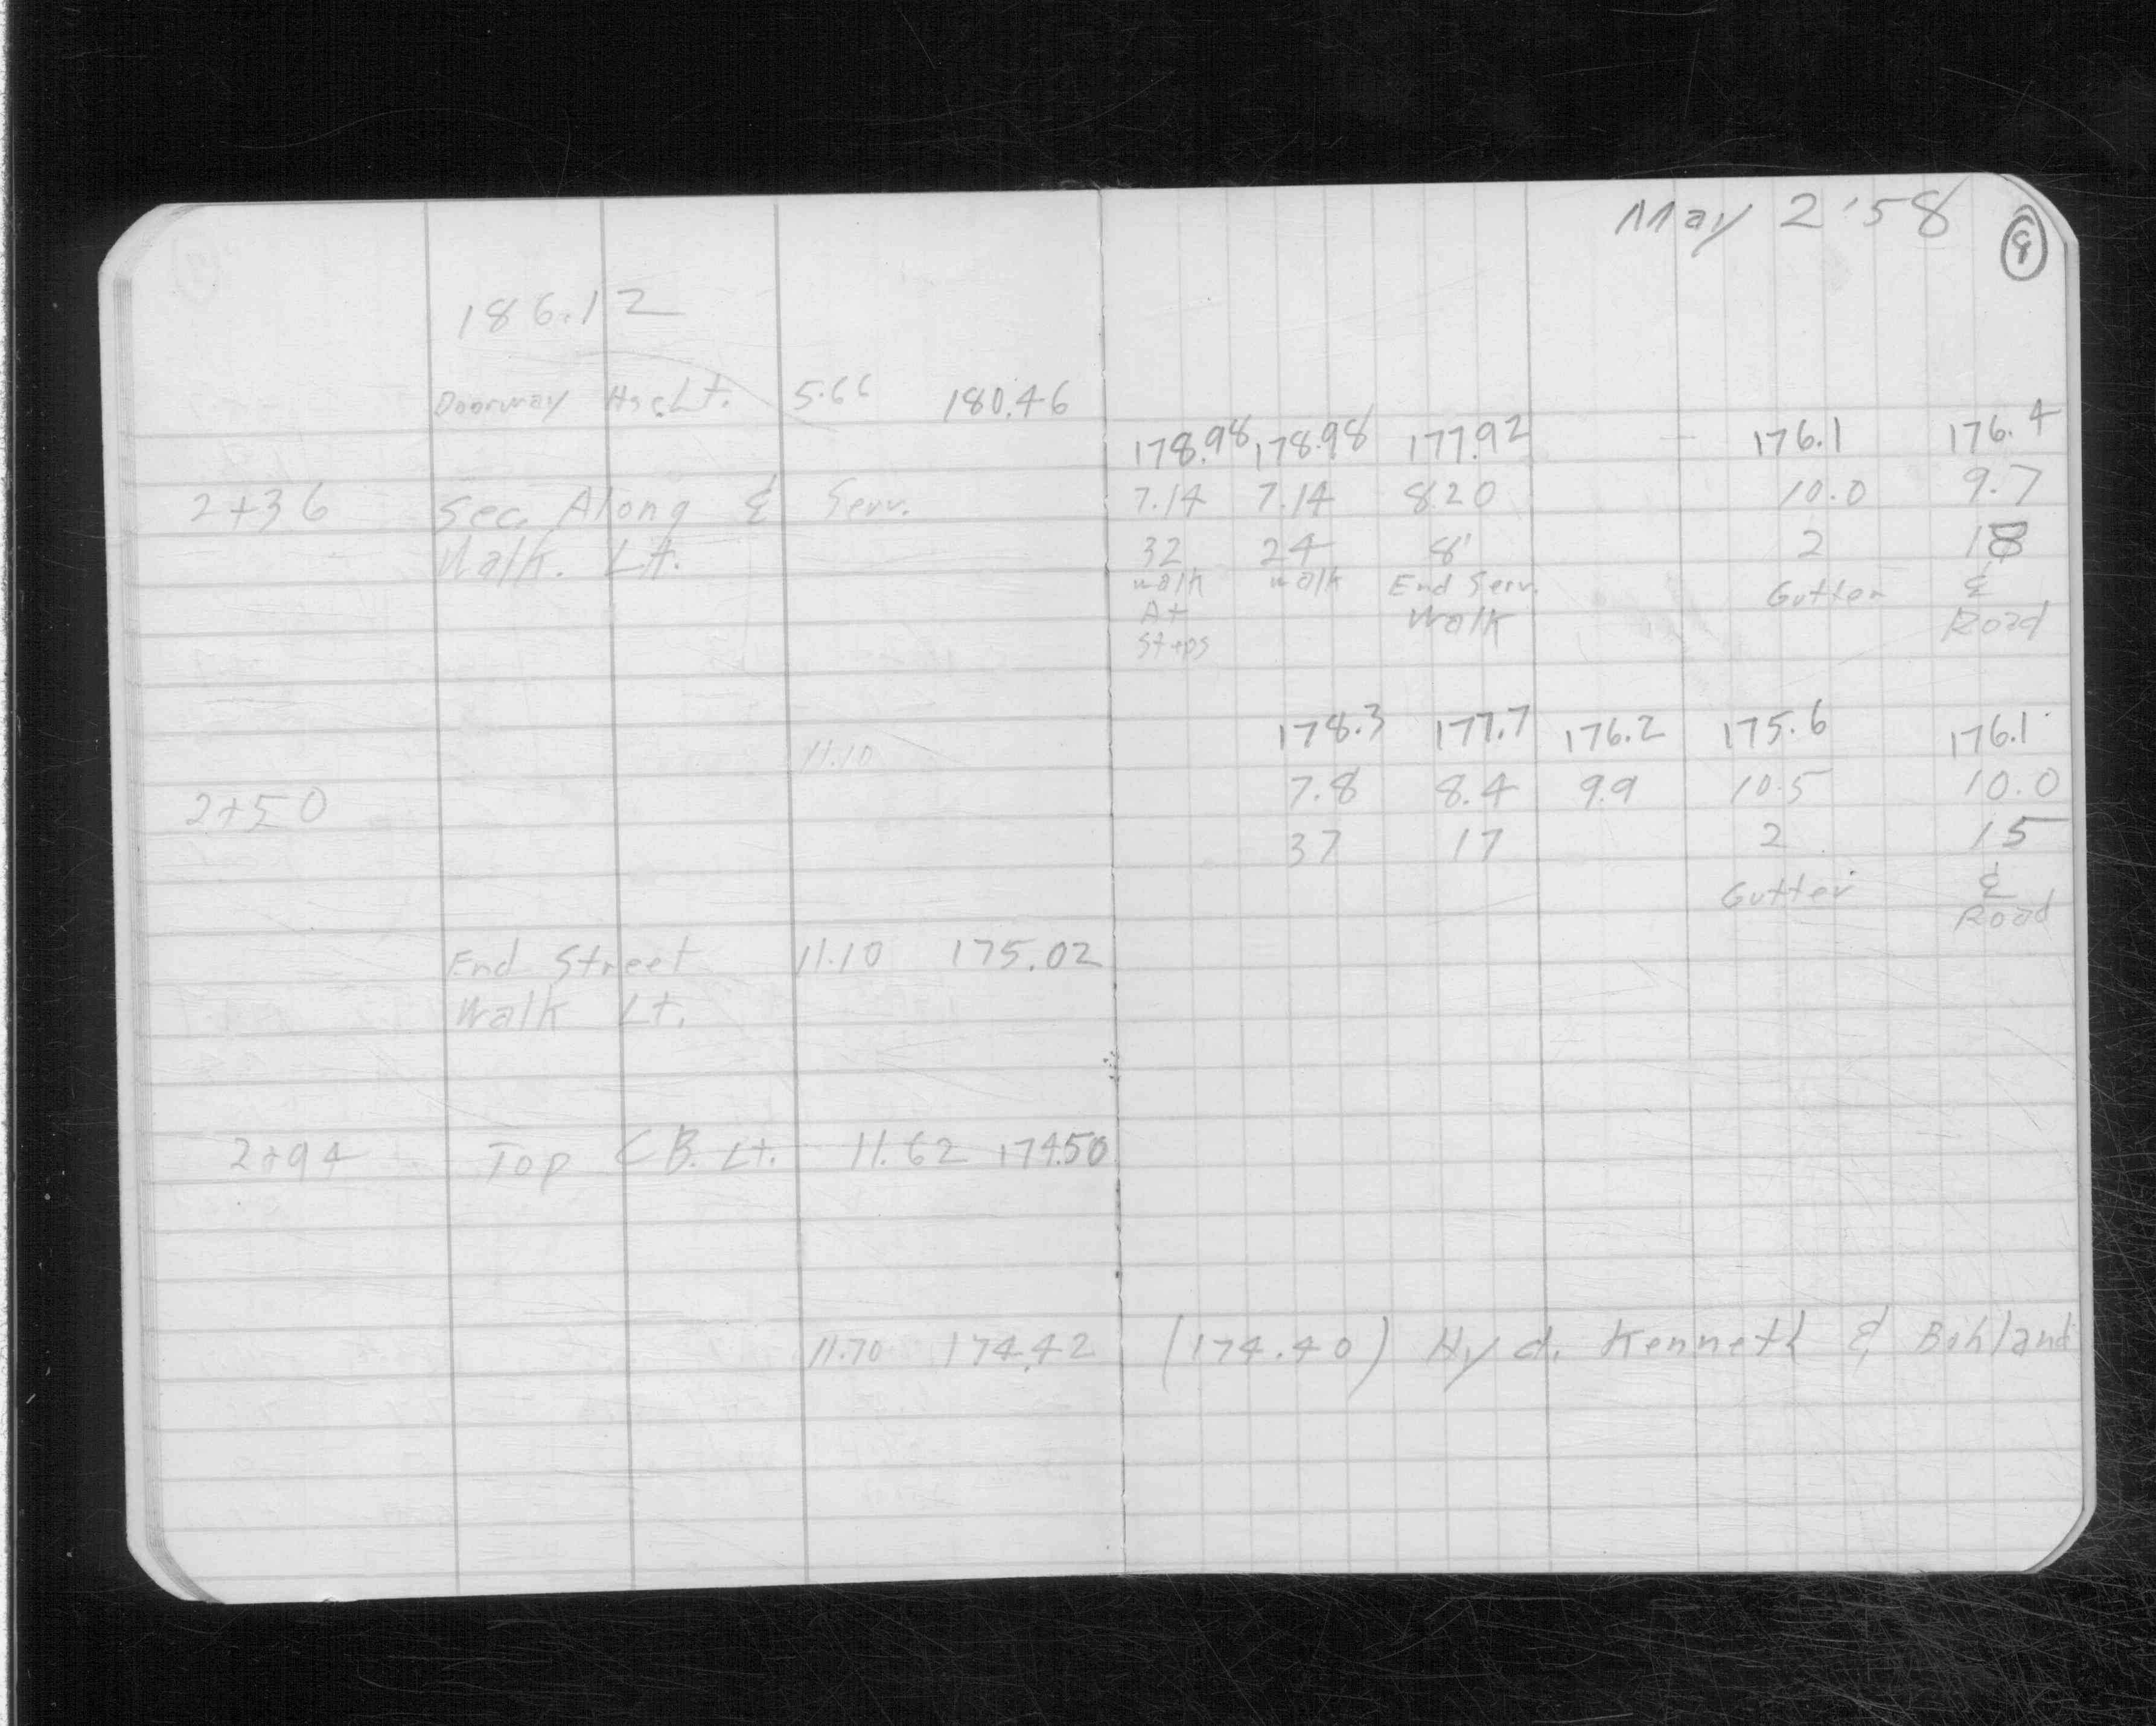 May 2 '58
186.12
Doorway Hse Lt. 5.66 180.46
178.98 178.98 177.92 176.1 176.4
2+36 Sec. Along ℄ Serv. 7.14 7.14 8.20 10.0 9.7
Walk. Lt. 32 24 8' 2 18
walk walk End Serv. Gutter ℄
At Walk Road
Steps
178.3 177.7 176.2 175.6 176.1
11.10
2+50 7.8 8.4 9.9 10.5 10.0
37 17 2 15
Gutter ℄
Road
End Street 11.10 175.02
Walk Lt.
2+94 Top C.B. Lt. 11.62 174.50
11.70 174.42 (174.40) Hyd. Kenneth & Bohland